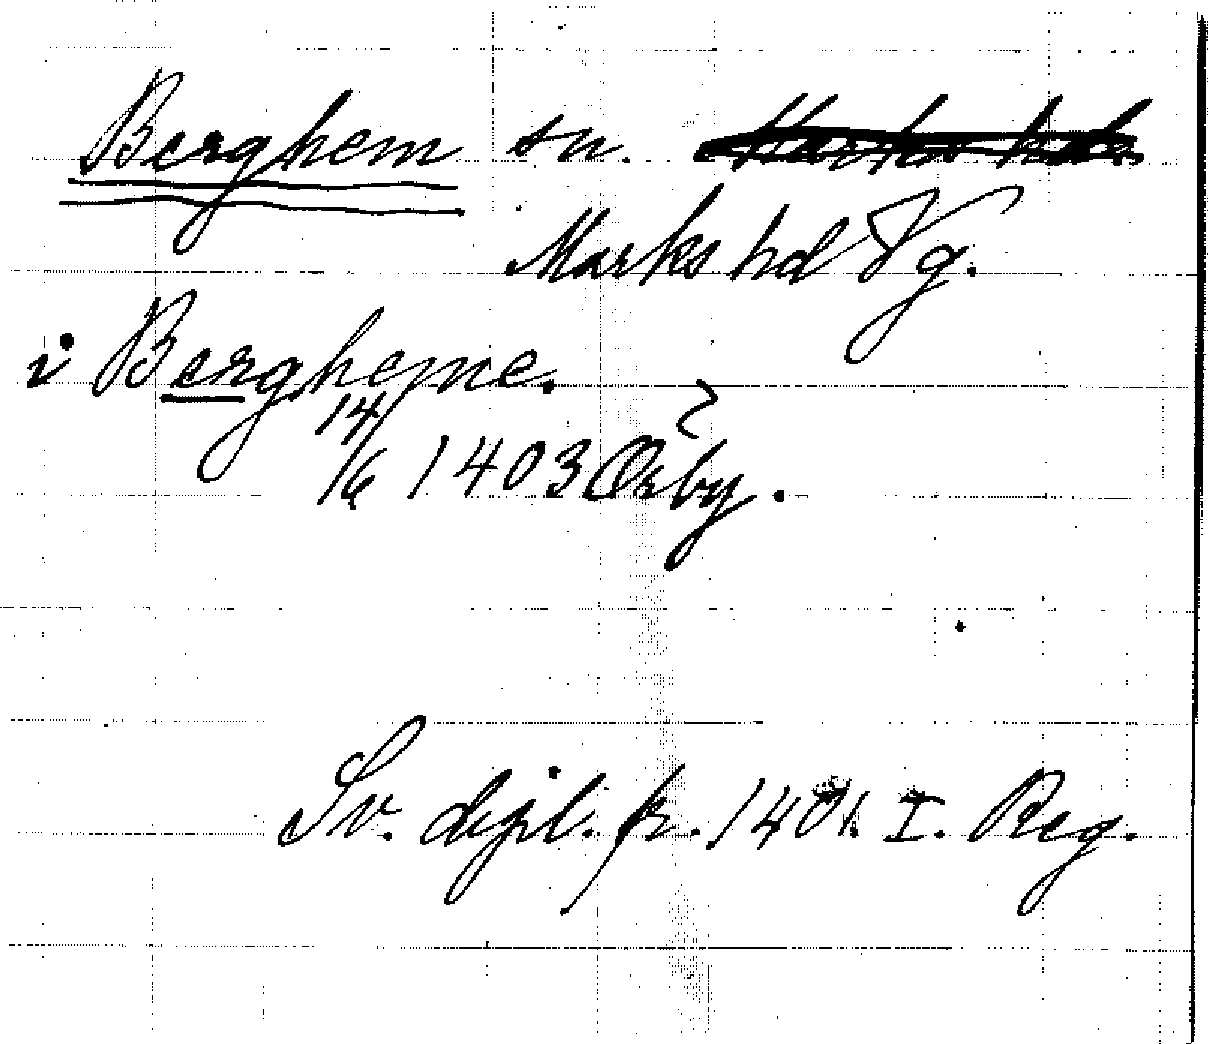 Berghem sn.
Marks hd Vg.
i Bergheme.
14/6 1403 Örby.
Sv. dipl. fr. 1401. I. Reg.